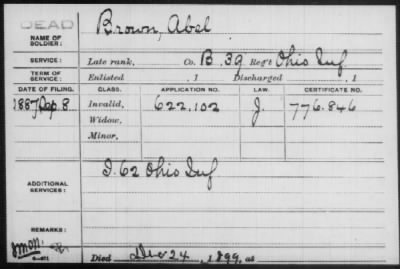 DEAD
NAME OF SOLDIER: Brown, Abel
SERVICE: Late rank, Co. B, 39 Reg't Ohio Inf
TERM OF SERVICE: Enlisted , 1 Discharged , 1
DATE OF FILING. CLASS. APPLICATION NO. LAW. CERTIFICATE NO.
1887 Sep 8 Invalid, 622,102 J. 776.846
Widow,
Minor,
ADDITIONAL SERVICES: I. 62 Ohio Inf
REMARKS:
Died Dec 24, 1899, at